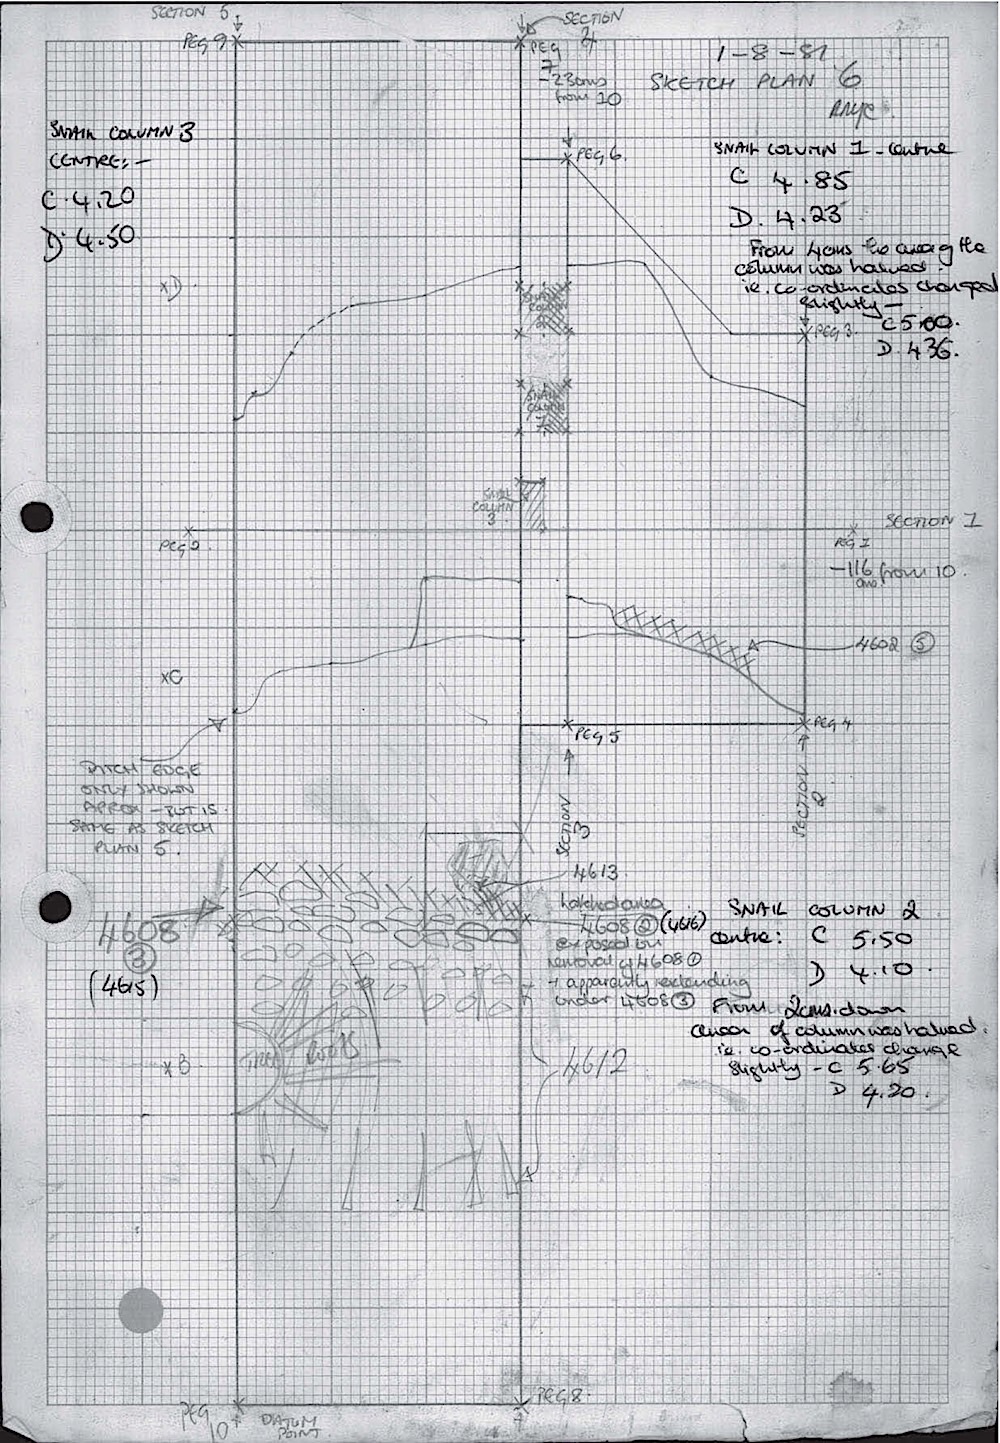 SECTION 5
SECTION
4
PEG 9
PEG
7
-23cms
from 10
1-8-81
SKETCH PLAN 6
SNAIL COLUMN 3
CENTRE:-
C 4.20
D 4.50
PEG 6.
SNAIL COLUMN 1 - centre
C 4.85
D. 4.23
From 4cms the area of the
column was halved.
ie. co-ordinates changed
slightly -
C 5.00.
D 4.36.
xD
SNAIL
COLUMN
2
PEG 3.
SNAIL
COLUMN
1
SNAIL
COLUMN
3
SECTION 1
PEG 2
PEG 1
-116 from 10.
cms
4602 (5)
xC
PEG 5
PEG 4
DITCH EDGE
ONLY SHOWN
APPROX - BUT IS
SAME AS SKETCH
PLAN 5.
SECTION
3
SECTION
2
4613
hatched area
4608 (2) (4616)
exposed on
removal of 4608 (1)
+ apparently extending
under 4608 (3)
4608
(3)
(4615)
SNAIL COLUMN 2
centre: C 5.50
D 4.10.
From 2cms down
area of column was halved.
ie. co-ordinates change
slightly - C 5.65
D 4.20.
TREE ROOTS
xB
4612
PEG
10
DATUM
POINT.
PEG 8.